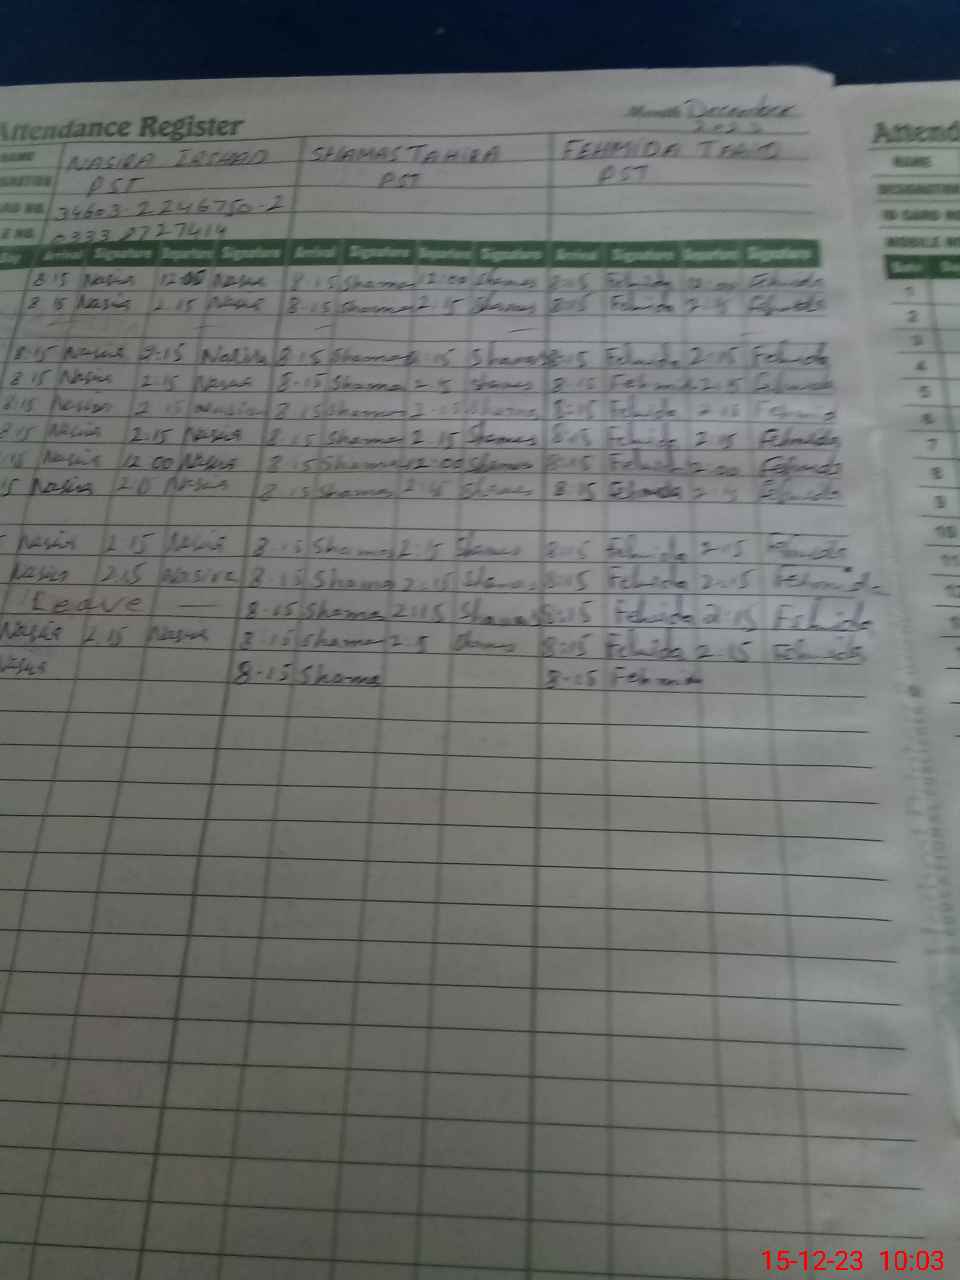 Attendance Register Month December
2023
NAME NASIRA IRSHAD SHAMAS TAHIRA FEHMIDA
PST PST PST
34603-2246750-2
0333 2727414
Arrival Signature Signature Arrival Signature Signature Arrival Signature Signature
8:15 Nasir 12:05 Nasir 8:15 Shama 12:00 Shamas 8:15 Fehmida 12:00 Fehmida
8:15 Nasir 2:15 Nasir 8:15 Shama 2:15 Shamas 8:15 Fehmida 2:15 Fehmida
8:15 Nasir 2:15 Nasira 8:15 Shama 2:15 Shamas 8:15 Fehmida 2:15 Fehmida
8:15 Nasir 2:15 Nasir 8:15 Shama 2:15 Shamas 8:15 Fehmida 2:15 Fehmida
8:15 Nasir 2:15 Nasir 8:15 Shama 2:15 Shamas 8:15 Fehmida 2:15 Fehmida
8:15 Nasir 2:15 Nasir 8:15 Shama 2:15 Shamas 8:15 Fehmida 2:15 Fehmida
:15 Nasir 12:00 Nasir 8:15 Shama 12:00 Shamas 8:15 Fehmida 12:00 Fehmida
15 Nasir 2:15 Nasir 8:15 Shama 2:15 Shamas 8:15 Fehmida 2:15 Fehmida
Nasir 2:15 Nasir 8:15 Shama 2:15 Shamas 8:15 Fehmida 2:15 Fehmida
Nasir 2:15 Nasira 8:15 Shama 2:15 Shamas 8:15 Fehmida 2:15 Fehmida
Leave — 8:15 Shama 2:15 Shamas 8:15 Fehmida 2:15 Fehmida
Nasir 2:15 Nasir 8:15 Shama 2:15 Shamas 8:15 Fehmida 2:15 Fehmida
Nasir 8:15 Shama 8:15 Fehmida
Attend
NAME
DESIGNATION
ID CARD NO
MOBILE N
Date
1
2
3
4
5
6
7
8
9
10
11
15-12-23 10:03